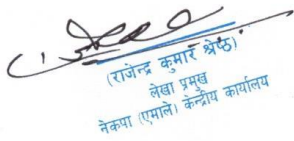 (राजेन्द्र कुमार श्रेष्ठ)
लेखा प्रमुख
नेकपा (एमाले) केन्द्रीय कार्यालय